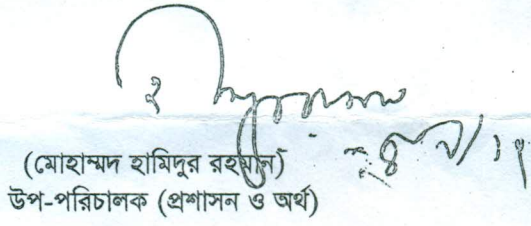 (মোহাম্মদ হামিদুর রহমান)
উপ-পরিচালক (প্রশাসন ও অর্থ)